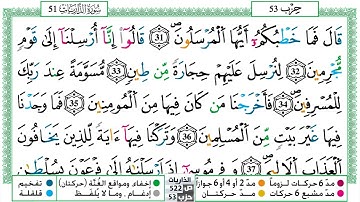 51 سُورَةُ الذَّارِيَاتِ حِزْب 53
قَالَ فَمَا خَطْبُكُمُۥٓ أَيُّهَا ٱلْمُرْسَلُونَ 31 قَالُوٓا۟ إِنَّآ أُرْسِلْنَآ إِلَىٰ قَوْمٍ
مُّجْرِمِينَ 32 لِنُرْسِلَ عَلَيْهِمْ حِجَارَةً مِّن طِينٍ 33 مُّسَوَّمَةً عِندَ رَبِّكَ
لِلْمُسْرِفِينَ 34 فَأَخْرَجْنَا مَن كَانَ فِيهَا مِنَ ٱلْمُومِنِينَ 35 فَمَا وَجَدْنَا
فِيهَا غَيْرَ بَيْتٍ مِّنَ ٱلْمُسْلِمِينَ 36 وَتَرَكْنَا فِيهَآ ءَايَةً لِّلَّذِينَ يَخَافُونَ
ٱلْعَذَابَ ٱلْأَلِيمَ 37 وَفِى مُوسَىٰٓ إِذْ أَرْسَلْنَٰهُ إِلَىٰ فِرْعَوْنَ بِسُلْطَٰنٍ
مدّ 6 حركات لزوماً مدّ 2 أو 4 أو 6 جوازاً إخفاء ومواقع الغُنَّة (حركتان) تفخيم
مدّ مشبع 6 حركات مدّ حركتان إدغام ، وما لا يُلفظ قلقلة
الذاريات
ص 522
حزب 53